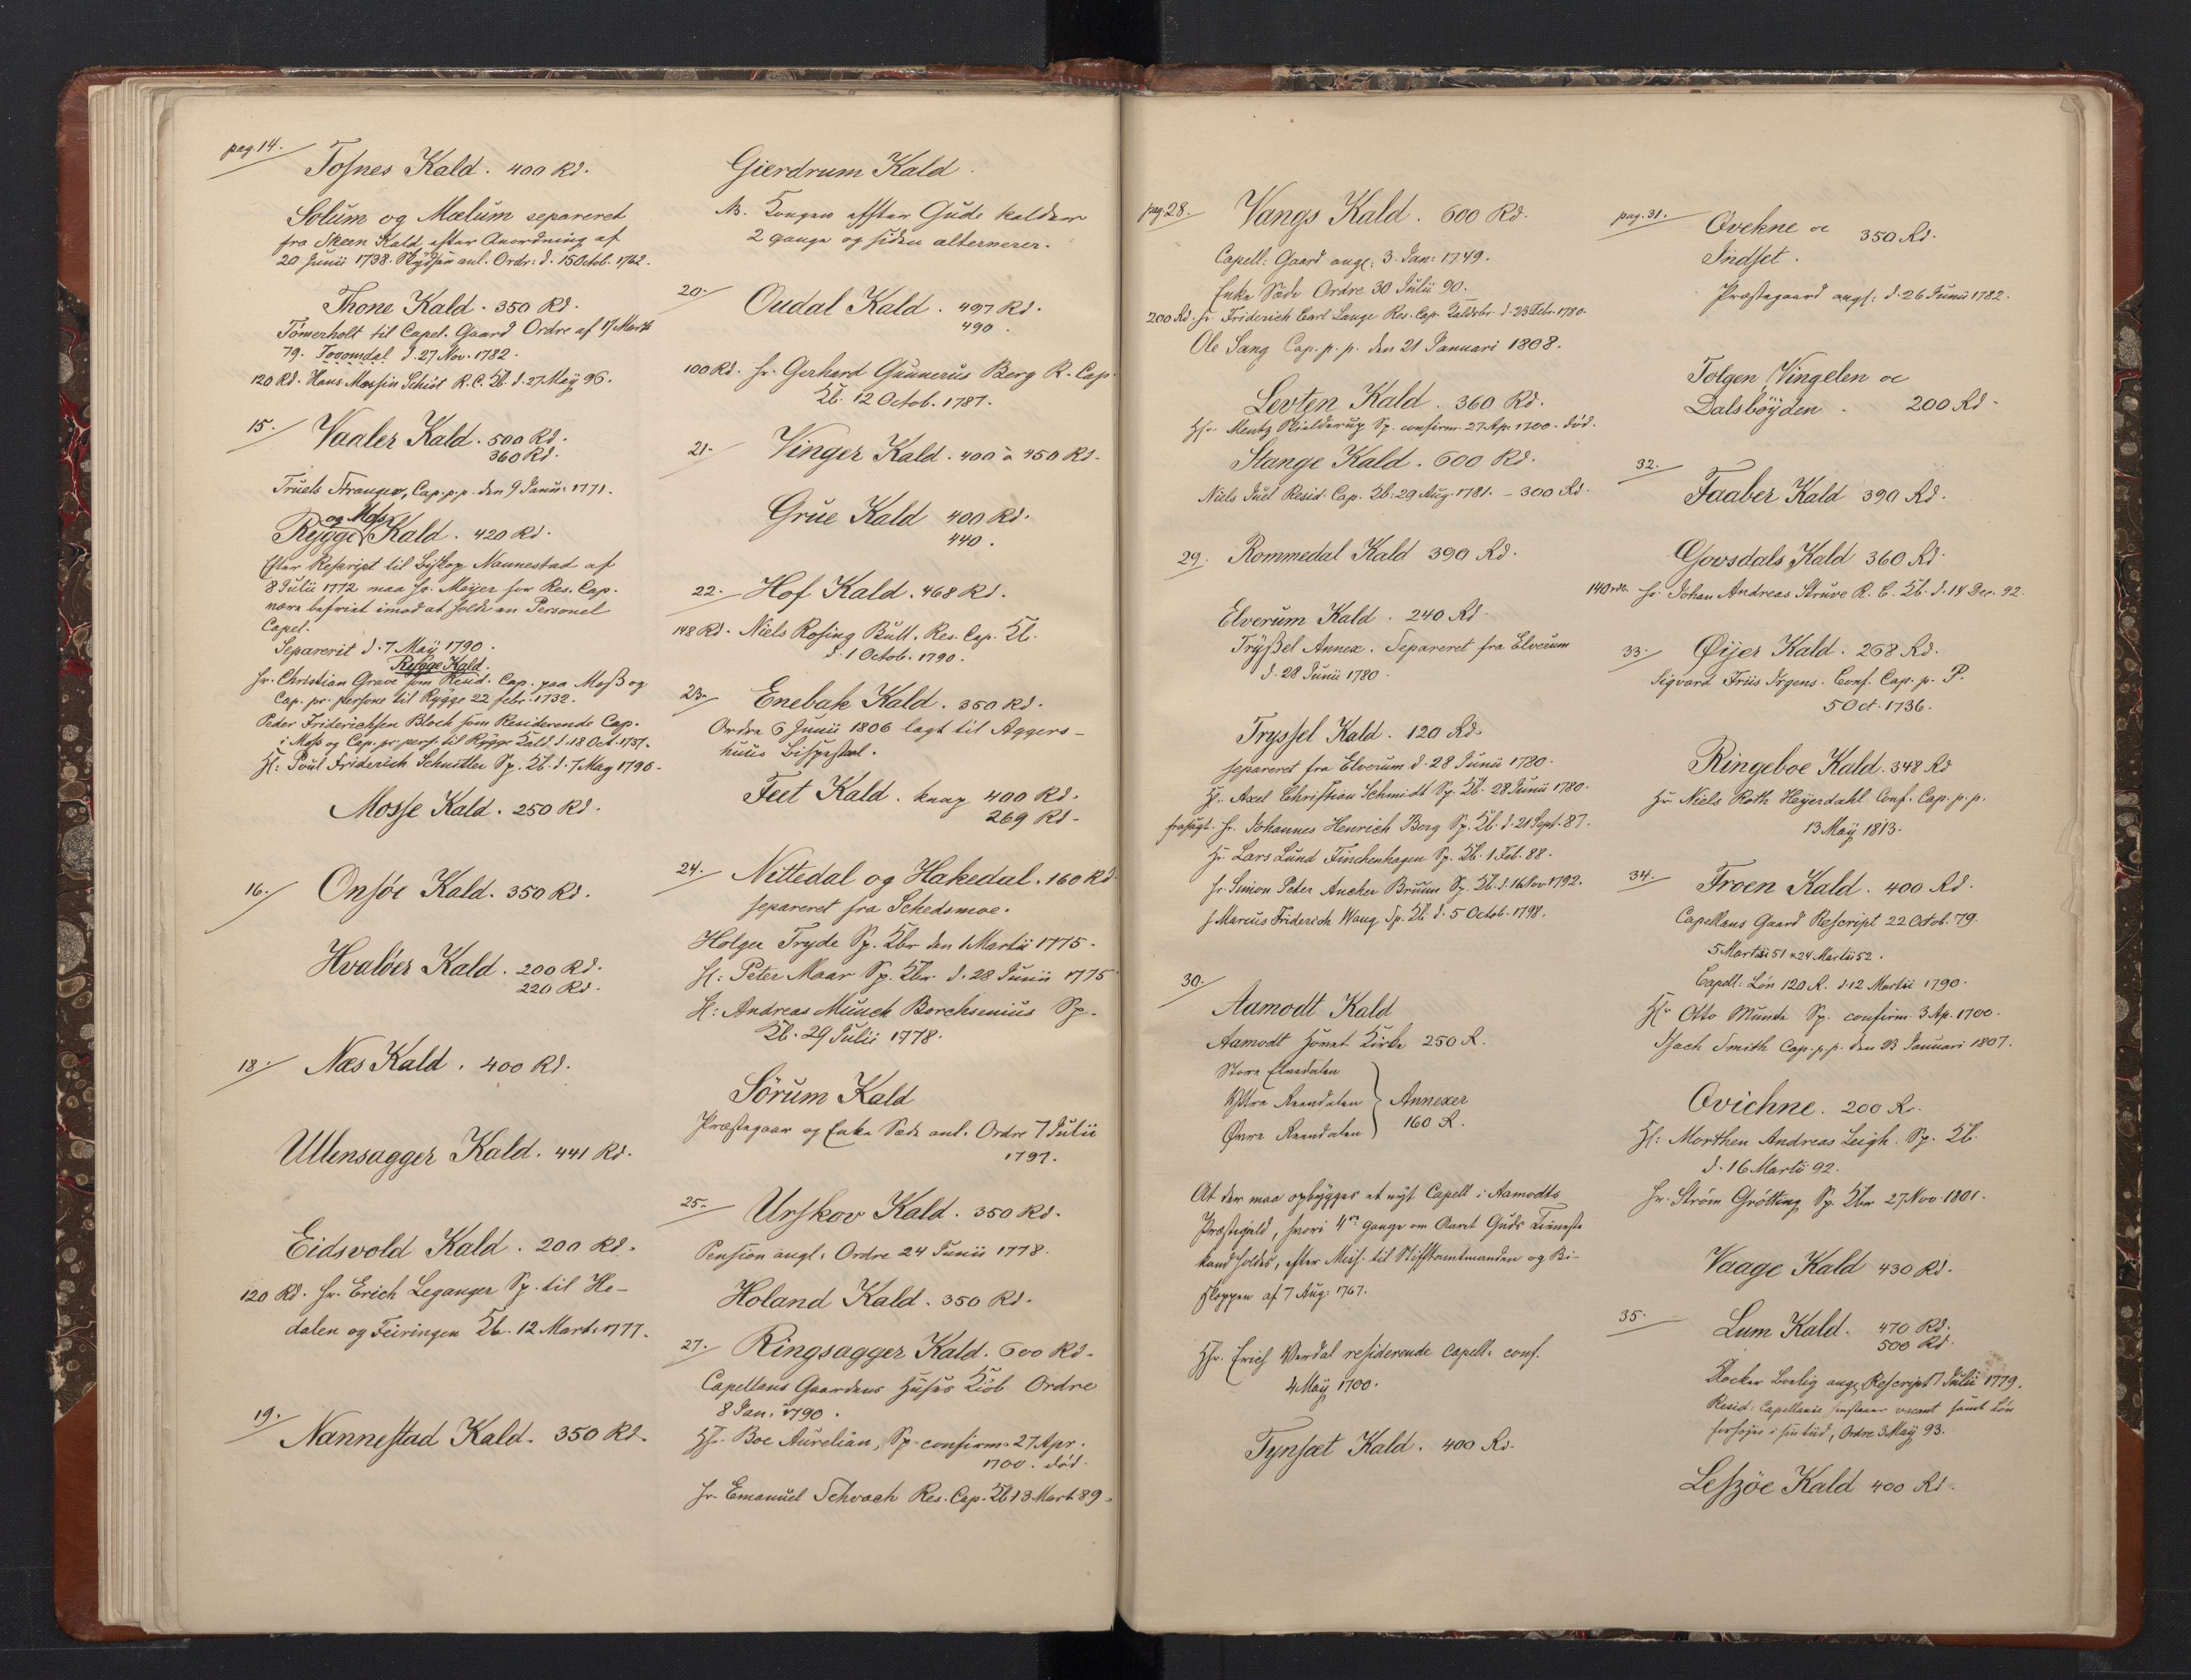 pag. 14.
Tosnes Kald. 400 Rd.
Solum og Mælum separeret
fra Skeen Kald efter Anordning af
20 Junii 1738. anl. Ordr: d. 15 Octob. 1762.
Thone Kald. 350 Rd.
Tömerholt til Capel. Gaard Ordre af 17 Marts
79. d. 27 Nov. 1782.
120 Rd. Hans Schiöt R. C. Kb. d. 27 May 96.
15. Vaaler Kald. 500 Rd.
360 Rd.
Truels Stranger, Cap. p. p. den 9 Janu: 1771.
og Moss
Rygge Kald. 420 Rd.
Efter Rescript til Biskop Nannestad af
8 Julii 1772 maa Hr. Meyer for Res. Cap.
være befriet imod at holde en Personel
Capel.
Separerit d. 7 Maÿ 1790.
Rygge Kald.
Hr. Christian Grave som Resid. Cap. paa Moss og
Cap. pr. persone til Rÿgge 22 febr. 1732.
Peder Friderichsen Bloch som Residerende Cap.
i Moss og Cap. pr. pers. til Rÿgge Kald d. 18 Oct. 1737.
H: Poul Friderich Schnitler Sp. Kb. d. 7 May 1790.
Mosse Kald. 250 Rd.
16. Onsöe Kald. 350 Rd.
Hvalöer Kald. 200 Rd.
220 Rd.
18. Næs Kald. 400 Rd.
Ullensagger Kald. 441 Rd.
Eidsvold Kald. 200 Rd.
120 Rd. Hr. Erich Leganger Sp. til He-
dalen og Feiringen Kb. 12 Mart. 1777.
19. Nannestad Kald. 350 Rd.
Gierdrum Kald.
NB. Kongen efter Gude kalder
2 gange og siden alternerer.
20. Oudal Kald. 497 Rd.
490.
100 Rd. Hr. Gerhard Gunnerus Berg R. Cap.
Kb. 12 Octob. 1787.
21. Vinger Kald. 400 à 450 Rd.
Grue Kald 400 Rd.
440.
22. Hof Kald. 468 Rd.
148 Rd. Niels Rosing Bull. Res. Cap. Kb.
d. 1 Octob. 1790.
23. Enebak Kald. 350 Rd.
Ordre 6 Junii 1806 lagt til Aggers-
huus Bispestol.
Feet Kald. knap 400 Rd.
269 Rd.
24. Nittedal og Hakedal. 160 Rd
separeret fra Schedsmoe.
Holger Tryde Sp. Kbr den 1 Martii 1775.
H: Peter Maar Sp. Kbr. d. 28 Junii 1775
H: Andreas Munch Borchsenius Sp.
Kb. 29 Julii 1778.
Sörum Kald
Præstegaar og Enke Sæde anl. Ordre 7 Julii
1797.
25. Urskov Kald. 350 Rd.
Pension angl. Ordre 24 Junii 1778.
Holand Kald. 350 Rd.
27. Ringsagger Kald. 600 Rd.
Capellans Gaardens Huses Kiöb Ordre
8 Jan. 1790.
Hr. Boe Aurelian, Sp. confirm. 27 Apr.
1700. död.
Hr. Emanuel Schvach Res. Cap. Kb 13 Mart. 89.
pag. 28. Vangs Kald. 600 Rd.
Capell: Gaard ang: 3. Jan: 1749.
Enke Sæde Ordre 30 Julii 90.
200 Rd. Hr. Friderich Carl Lange Res. Cap. Kaldsbr. d. 23 Febr. 1780.
Ole Sang Cap. p. p. den 21 Januari 1808.
Levten Kald. 360 Rd.
Hr. Mentz Skielderup Sp. confirm. 27 Ap. 1700. död.
Stange Kald. 600 Rd.
Niels Juel Resid. Cap. Kb. 29 Aug. 1781. - 300 Rd.
29. Rommedal Kald 390 Rd.
Elverum Kald. 240 Rd.
Trÿssel Annex. Separeret fra Elverum
d. 28 Junii 1780.
Tryssel Kald. 120 Rd.
separeret fra Elverum d. 28 Junii 1780.
Hr. Axel Christian Schmidt Sp. Kb. 28 Junii 1780.
frasagt. Hr. Johannes Henrich Berg Sp. Kb. d. 21 Sept. 87.
Hr. Lars Lund Finchenhagen Sp. Kb. 1 Feb. 88.
Hr. Simon Peter Ancher Bruun Sp. Kb. d. 16 Nov 1792.
Hr Marcus Friderich Wang Sp. Kb. d. 5 Octob. 1798.
30. Aamodt Kald
Aamodt Hovet Kirke 250 R.
Store Elvedalen
Yttre Reendalen } Annexer
Övre Reendalen 160 R.
At der maa opbÿgges et nÿt Capell i Aamodts
Præstegield, hvori 4re gange om Aaret Guds Tieneste
kand holdes, efter Miss. til Stiftsamtmanden og Bi-
skoppen af 7 Aug. 1767.
Hr. Erich Verdal residerende Capell. conf.
4 Maÿ 1700.
Tynsæt Kald. 400 Rd.
pag. 31. Qvekne oc 350 Rd.
Indset.
Præstegaard angl: d. 26 Junii 1782.
Tolgen, Vingelen oc
Dalsböÿden. 200 Rd.
32. Faaber Kald 390 Rd.
Govsdals Kald 360 Rd
140 rdr. Hr. Johan Andreas Struve R. C. Kb. d. 14 Dec. 92.
33. Öÿer Kald. 268 Rd.
Sigvard Friis Irgens. Conf. Cap. p. P.
5 Oct. 1736.
Ringeboe Kald. 348 Rd
Hr Niels Roth Heÿerdahl Conf. Cap. p. p.
13 Maÿ 1813.
34. Froen Kald. 400 Rd.
Capellans Gaard Rescript 22 Octob. 79.
5 Martii 51 & 24 Martii 52.
Capell: Lön 120 R. d. 12 Martii 1790.
Hr Otto Munthe Sp. confirm. 3 Ap. 1700.
Isach Smith Cap. p. p. den 23 Januari 1807.
Qvichne. 200 Rd.
H: Morthen Andreas Leigh. Sp. Kb.
d. 16 Marti 92.
Hr. Ström Grötting Sp. Kbr 27 Nov 1801.
Vaage Kald 430 Rd.
35. Lum Kald. 470 Rd.
500 Rd.
Klocker Bolig ang. Rescript 7 Julii 1779.
Resid: Capellanie vacant samt Lön
forhöjes i sin tid, Ordre 3 Maÿ 93.
Leszöe Kald 400 Rd.